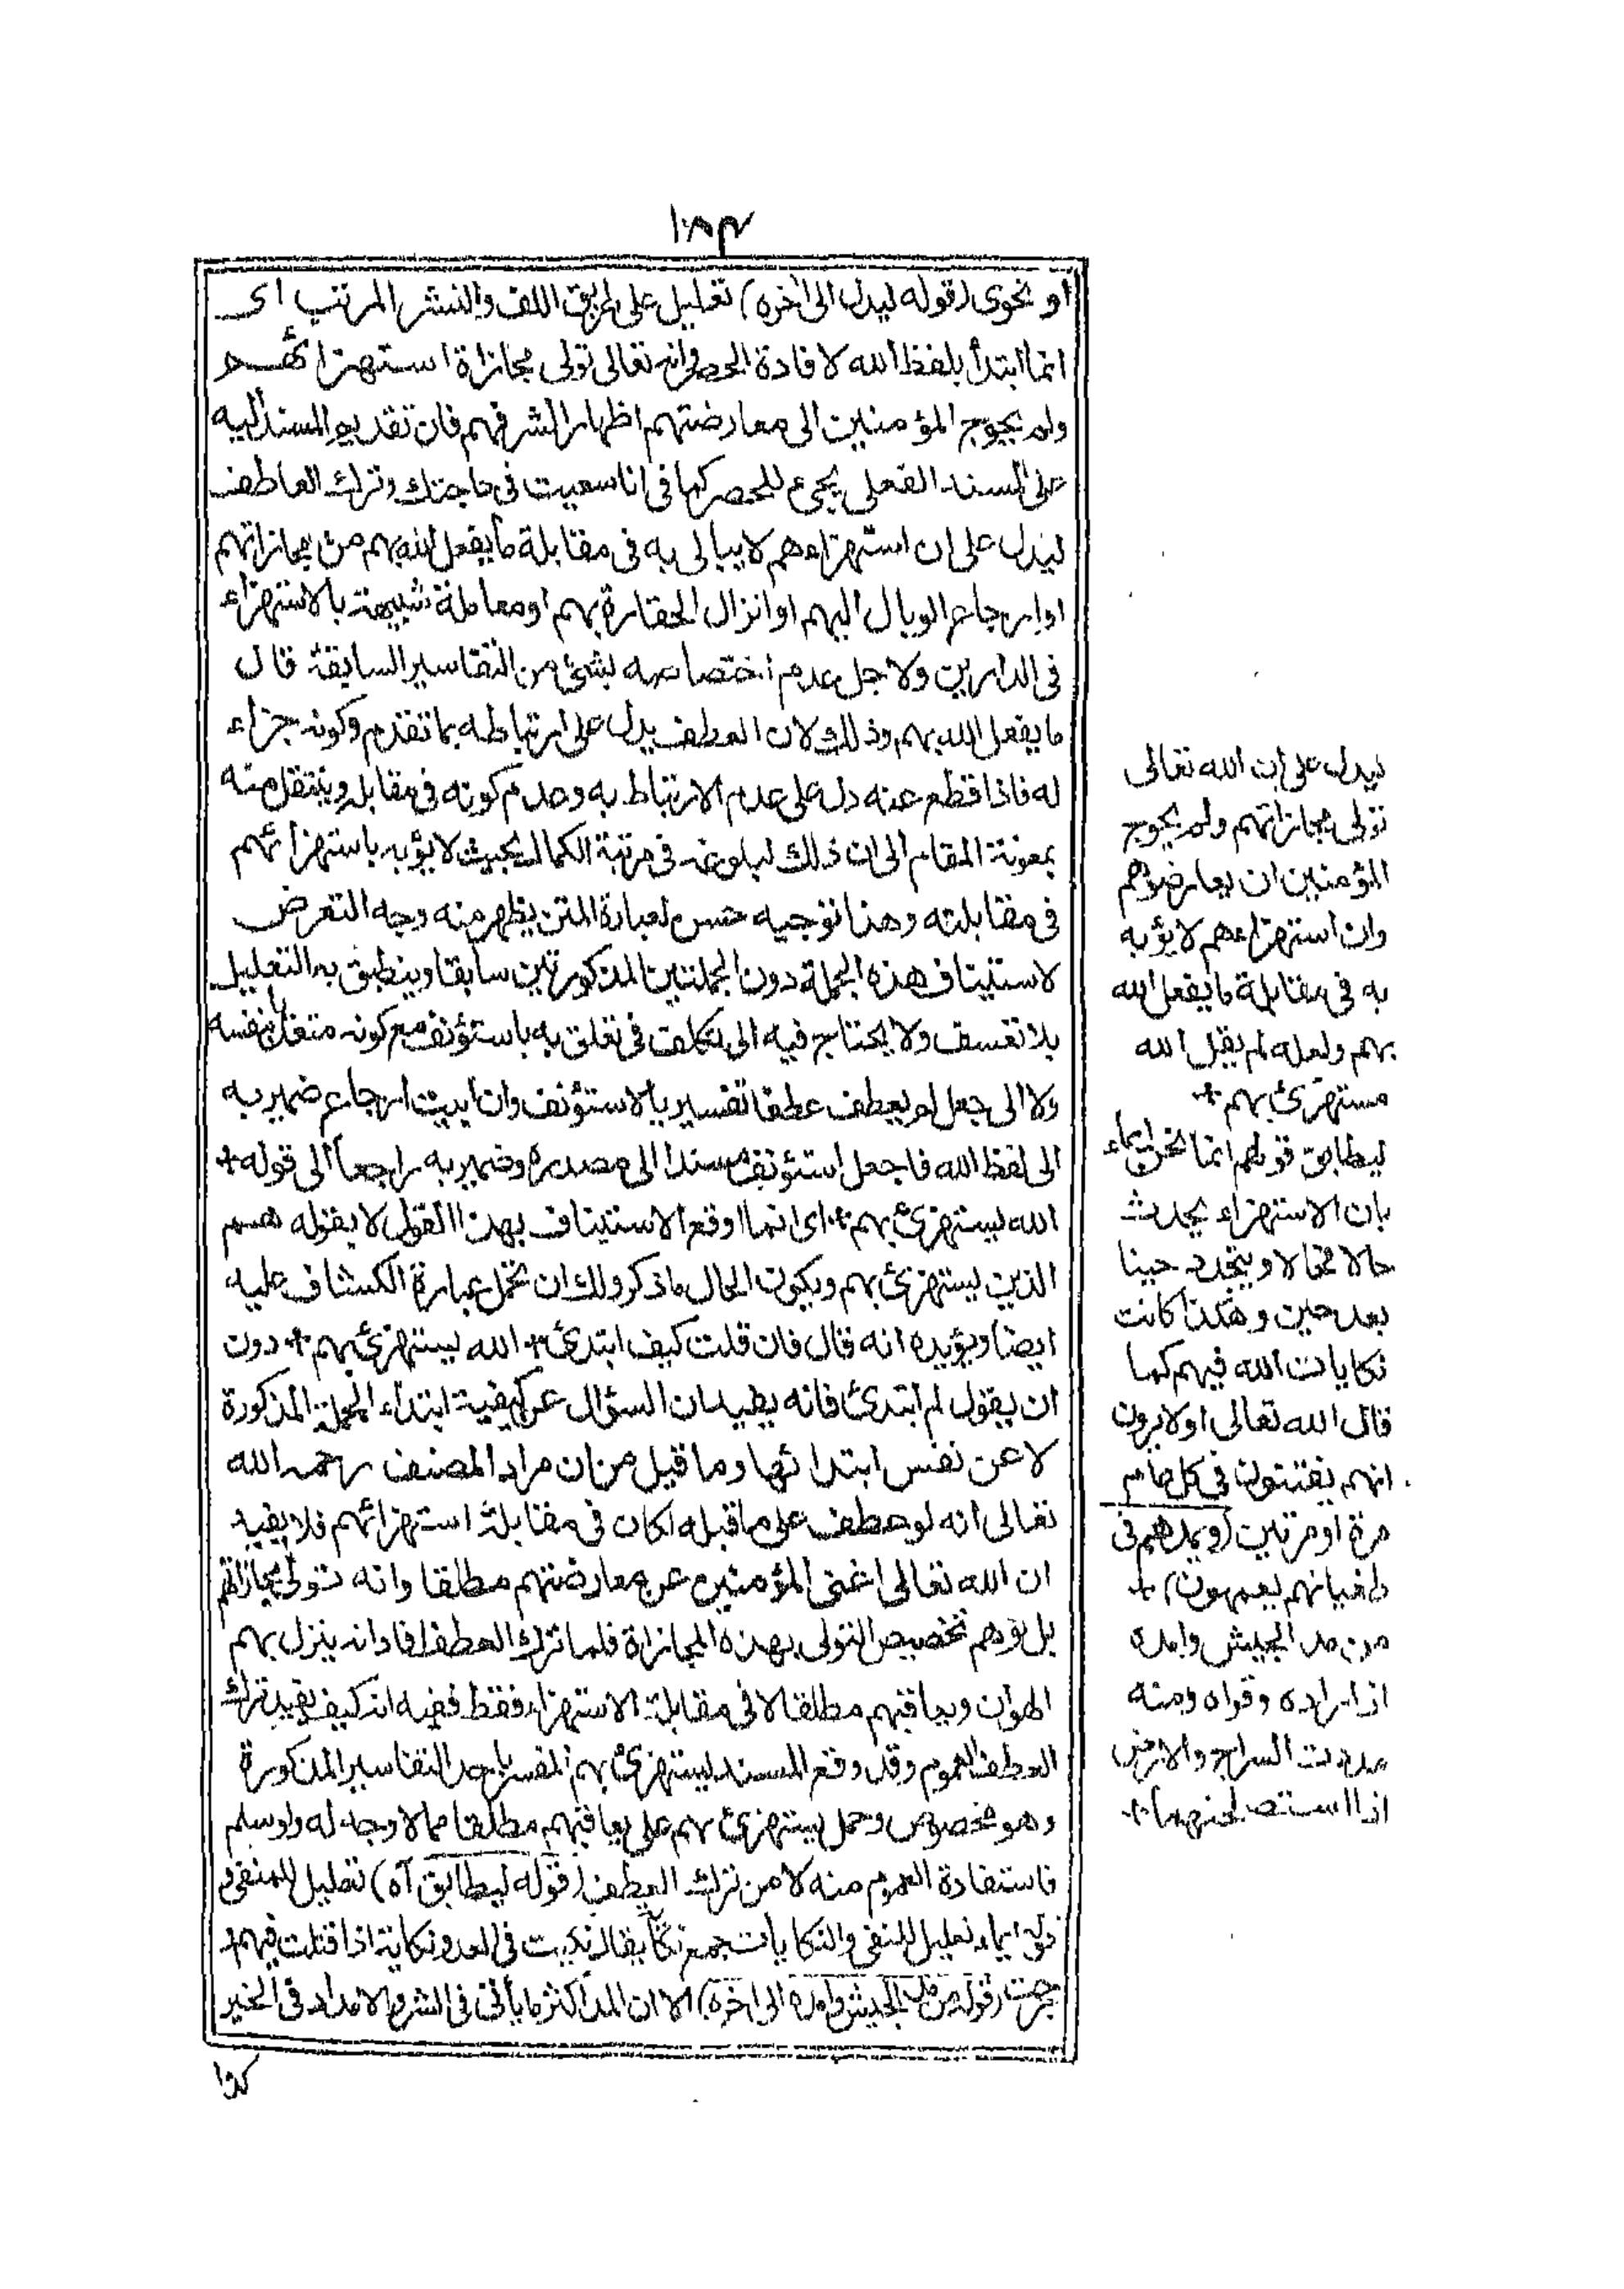 ١٨٣
او نحوى (قوله ليدل الى اخره) تعليل على طريق اللف والنشر المرتب اى
انما ابتدأ بلفظ الله لافادة الحصر وانه تعالى تولى مجازاة استهزائهم
ولم يحوج المؤمنين الى معارضتهم اظهارا لشرفهم فان تقديم المسند اليه
على المسند الفعلى يجىء للحصر كما فى انا سعيت فى حاجتك وترك العاطف
ليدل على ان استهزاءهم لا يبالى به فى مقابلة ما يفعل الله بهم من مجازاتهم
او ارجاع الوبال اليهم او انزال الحقارة بهم او معاملة شبيهة بالاستهزاء
فى الدارين ولاجل عدم اختصاصه بشئ من التفاسير السابقة قال
ما يفعل الله بهم وذلك لان العطف يدل على ارتباطه بما تقدم وكونه جزاء
له فاذا قطع عنه دل على عدم الارتباط به وعدم كونه فى مقابله وينتقل منه
بمعونة المقام الى ان ذلك لبلوغه فى مرتبة الكمال بحيث لا يؤبه باستهزائهم
فى مقابلته وهذا توجيه حسن لعبارة المتن يظهر منه وجه التعرض
لاستيناف هذه الجملة دون الجملتين المذكورتين سابقا وينطبق به التعليل
بلا تعسف ولا يحتاج فيه الى تكلف فى تعلق به باستؤنف مع كونه متعديا بنفسه
ولا الى جعل لم يعطف عطفا تفسيريا لاستؤنف وان ابيت ارجاع ضمير به
الى لفظ الله فاجعل استؤنف مسندا الى مصدره وضمير به راجعا الى قوله +
الله يستهزئ بهم + اى انما اوقع الاستيناف بهذا القول لا بقوله هم
الذين يستهزئ بهم ويكون الحال ما ذكر ولك ان تحمل عبارة الكشاف عليه
ايضا ويؤيده انه قال فان قلت كيف ابتدئ + الله يستهزئ بهم + دون
ان يقول لم ابتدئ فانه يفيد ان السؤال عن كيفية ابتداء الجملة المذكورة
لا عن نفس ابتدائها وما قيل من ان مراد المصنف رحمه الله
تعالى انه لو عطف على ما قبله لكان فى مقابلة استهزائهم فلا يفيد
ان الله تعالى اغنى المؤمنين عن معارضتهم مطلقا وانه تولى مجازاتهم
بل توهم تخصيص التولى بهذه المجازاة فلما ترك العطف افاد انه ينزل بهم
الهوان ويعاقبهم مطلقا لا فى مقابلة الاستهزاء فقط ففيه انه كيف يفيد ترك
العطف العموم وقد وقع المسند يستهزئ بهم المفسر باحد التفاسير المذكورة
وهو مخصوص وحمل يستهزئ بهم على يعاقبهم مطلقا مما لا وجه له ولو سلم
فاستفادة العموم منه لا من ترك العطف (قوله ليطابق آه) تعليل للمنفى و
قوله ايماء تعليل للنفى والنكايات جمع نكاية يقال نكيت فى العدو نكاية اذا قتلت فيهم +
جرحت (قوله من مد الجيش وامده الى اخره) الا ان المد اكثر ما يأتى فى الشر والامداد فى الخير
ليدل على ان الله تعالى
تولى مجازاتهم ولم يحوج
المؤمنين ان يعارضوهم
وان استهزاءهم لا يؤبه
به فى مقابلة ما يفعل الله
بهم ولعله لم يقل الله
مستهزئ بهم +
ليطابق قولهم انما نحن ايماء
بان الاستهزاء يحدث
حالا فحالا ويتجدد حينا
بعد حين وهكذا كانت
نكايات الله فيهم كما
قال الله تعالى اولا يرون
انهم يفتنون فى كل عام
مرة او مرتين (ويمدهم فى
طغيانهم يعمهون) +
من مد الجيش وامده
اذا زاده وقواه ومنه
مددت السراج والارض
اذا استصلحتهما +